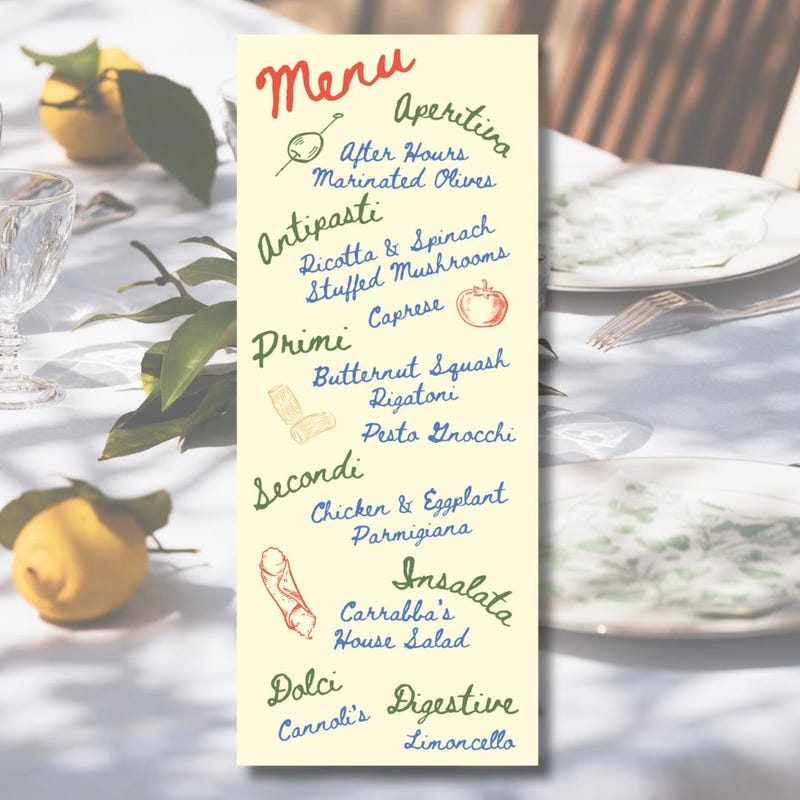 Menu
Aperitivo
After Hours
Marinated Olives
Antipasti
Ricotta & Spinach
Stuffed Mushrooms
Caprese
Primi
Butternut Squash
Rigatoni
Pesto Gnocchi
Secondi
Chicken & Eggplant
Parmigiana
Insalata
Carrabba's
House Salad
Dolci
Cannoli's
Digestive
Limoncello